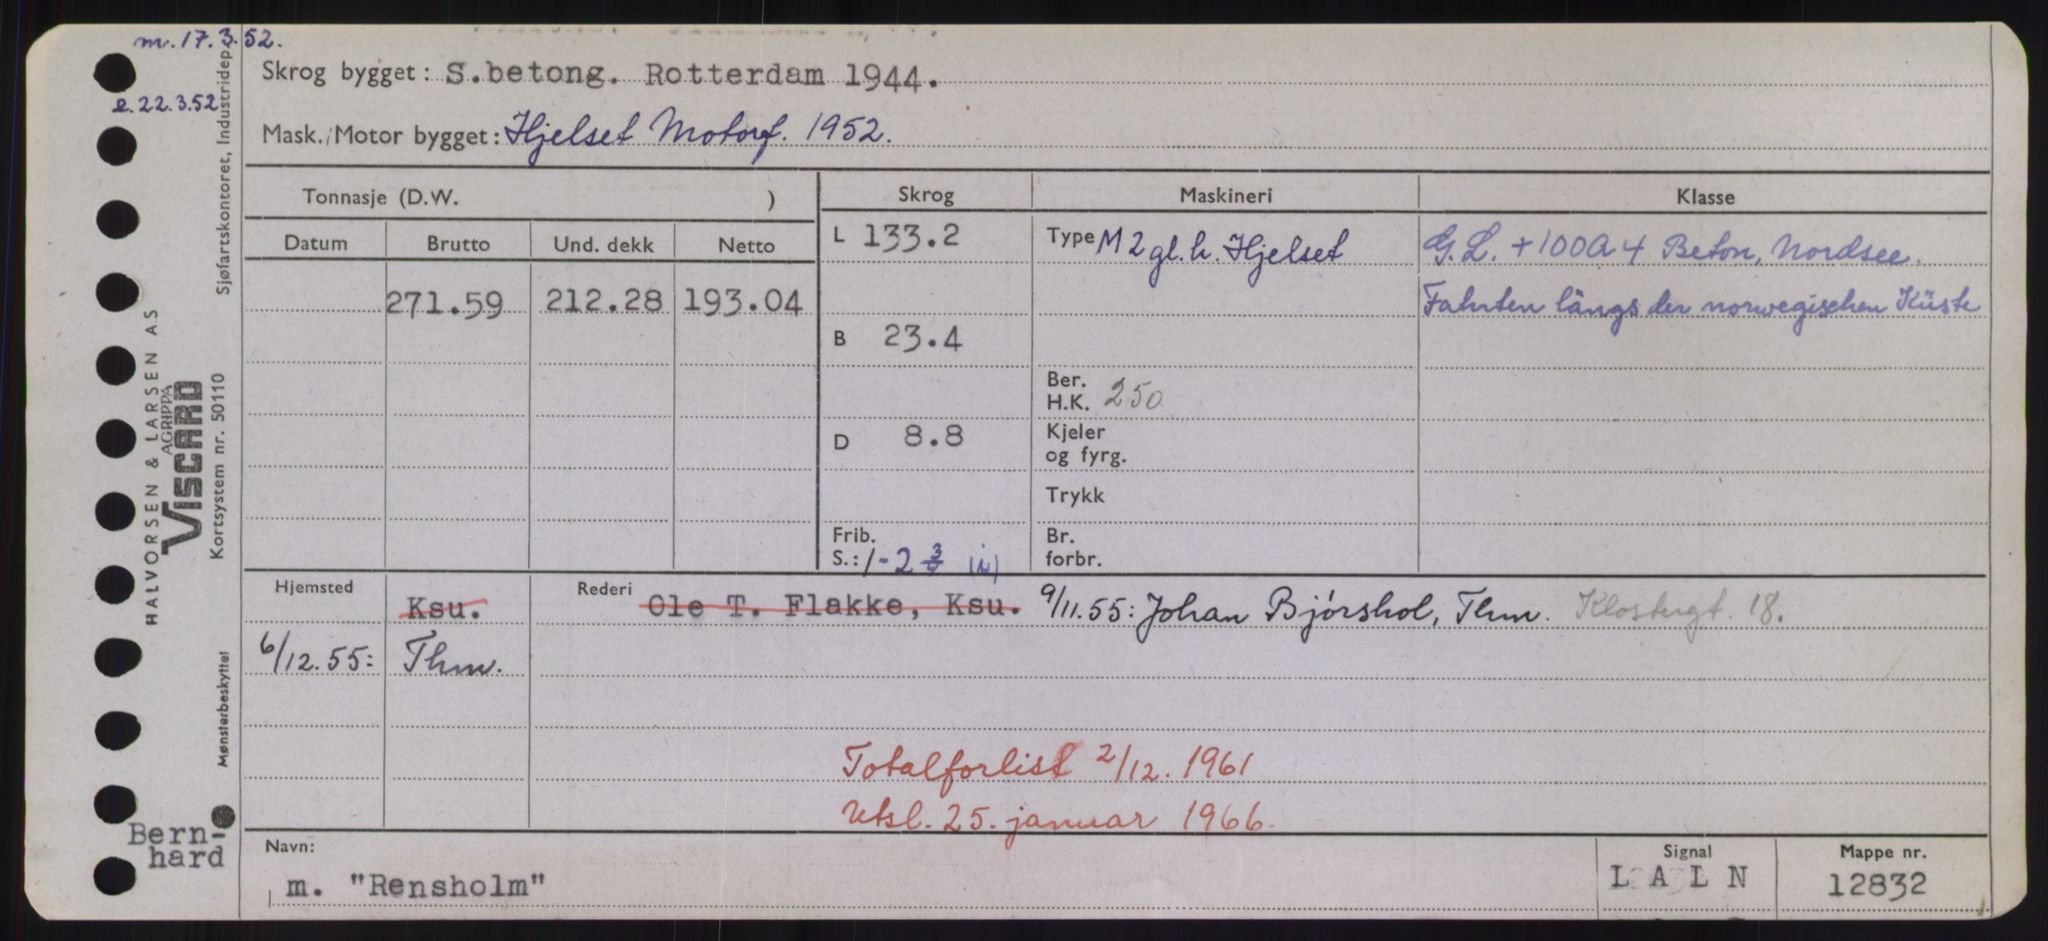 m. 17.3.52.
e. 22.3.52
Skrog bygget: S.betong. Rotterdam 1944.
Mask./Motor bygget: Hjelset Motorf. 1952.
Tonnasje (D.W. ) Skrog Maskineri Klasse
Datum Brutto Und. dekk Netto
L 133.2 Type M 2 gl. h. Hjelset G.L. +100A4 Beton, Nordsee.
271.59 212.28 193.04 Fahrten längs der norwegischen Küste
B 23.4
Ber.
H.K. 250
D 8.8 Kjeler
og fyrg.
Trykk
Frib. Br.
S.: 1-2 3/4 (i) forbr.
Hjemsted Ksu. Rederi Ole T. Flakke, Ksu. 9/11.55: Johan Bjørshol, Thm. Klostergt. 18.
6/12.55: Thm.
Totalforlist 2/12. 1961
Utsl. 25. januar 1966.
Navn: Signal Mappe nr.
m. "Rensholm" L A L N 12832
Bern-
hard
HALVORSEN & LARSEN AS
AGRIPPA
VISCARD
Kortsystem nr. 50110
Sjøfartskontoret, Industridep.
Mønsterbeskyttet